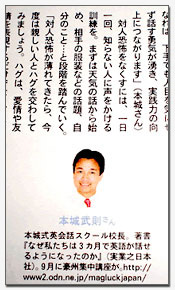 なれば、下手でも人目を気にせ
ず話す勇気が湧き、実践力の向
上につながります」（本城さん）
対人恐怖をなくすには、一日
一回、知らない人に声をかける
訓練を。まずは天気の話から始
め、相手の服装などの話題、自
分のこと…と段階を踏んでいく。
「対人恐怖が薄れてきたら、今
度は親しい人とハグを交わして
みましょう。ハグは、愛情や友
情を表現する
本城武則さん
本城式英会話スクール校長。著書
『なぜ私たちは3カ月で英語が話せ
るようになったのか』（実業之日本
社）。9月に豪州集中講座が。http://
www2.odn.ne.jp/magluckjapan/